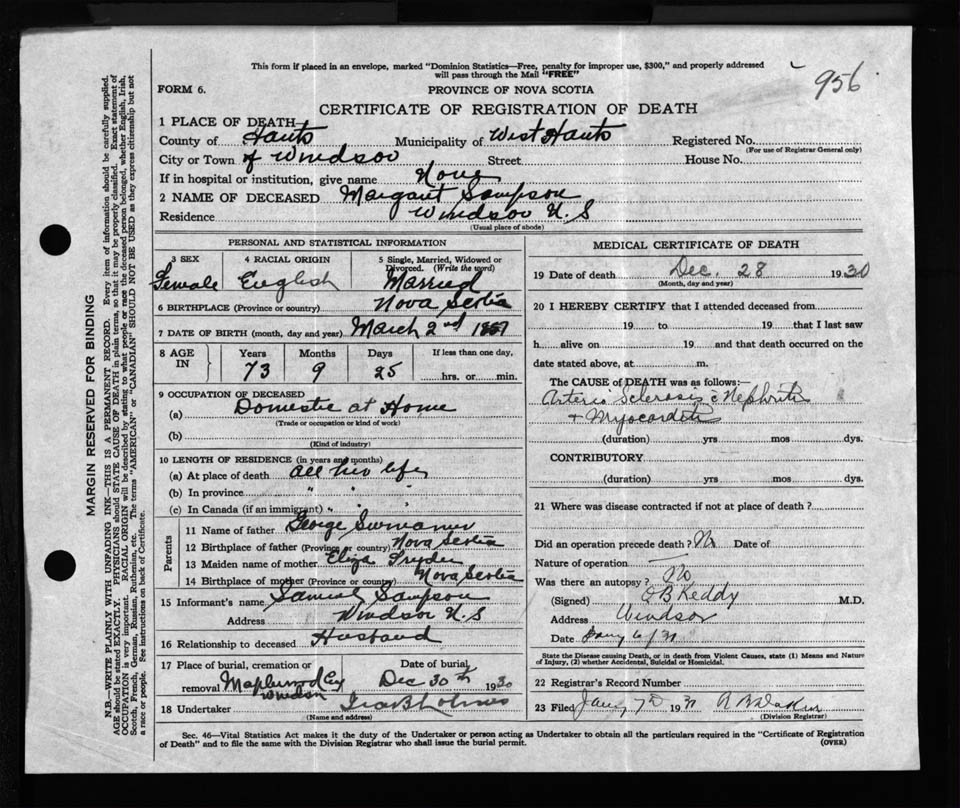 This form if placed in an envelope, marked "Dominion Statistics—Free, penalty for improper use, $300," and properly addressed
will pass through the Mail "FREE"
956
FORM 6.
PROVINCE OF NOVA SCOTIA
CERTIFICATE OF REGISTRATION OF DEATH
1 PLACE OF DEATH
County of Hants Municipality of West Hants Registered No.
(For use of Registrar General only)
City or Town of Windsor Street House No.
If in hospital or institution, give name None
2 NAME OF DECEASED Margaret Sampson
Residence Windsor N.S
(Usual place of abode)
PERSONAL AND STATISTICAL INFORMATION
3 SEX 4 RACIAL ORIGIN 5 Single, Married, Widowed or
Divorced. (Write the word)
Female English Married
6 BIRTHPLACE (Province or country) Nova Scotia
7 DATE OF BIRTH (month, day and year) March 2nd
8 AGE IN Years Months Days If less than one day,
73 9 25 hrs. or min.
9 OCCUPATION OF DECEASED
(a) Domestic at Home
(Trade or occupation or kind of work)
(b)
(Kind of industry)
10 LENGTH OF RESIDENCE (in years and months)
(a) At place of death all her life
(b) In province " " "
(c) In Canada (if an immigrant) " " "
Parents
11 Name of father George
12 Birthplace of father (Province or country) Nova Scotia
13 Maiden name of mother Eliza
14 Birthplace of mother (Province or country) Nova Scotia
15 Informant's name Samuel Sampson
Address Windsor N.S
16 Relationship to deceased Husband
17 Place of burial, cremation or removal Maplewood Cey Windsor
Date of burial Dec 30th 1930
18 Undertaker Ira B Lohnes
(Name and address)
MEDICAL CERTIFICATE OF DEATH
19 Date of death Dec. 28 1930
(Month, day and year)
20 I HEREBY CERTIFY that I attended deceased from
19 to 19 that I last saw
h alive on 19 and that death occurred on the
date stated above, at m.
The CAUSE OF DEATH was as follows:—
Arterio Sclerosis c Nephritis
+ Myocarditis
(duration) yrs mos dys.
CONTRIBUTORY
(duration) yrs mos dys.
21 Where was disease contracted if not at place of death?
Did an operation precede death? No Date of
Nature of operation —
Was there an autopsy? No
(Signed) O B Keddy M.D.
Address Windsor
Date Jany 6/31
State the Disease causing Death, or in death from Violent Causes, state (1) Means and Nature
of Injury, (2) whether Accidental, Suicidal or Homicidal.
22 Registrar's Record Number
23 Filed Jany 7th 1931
(Division Registrar)
Sec. 46—Vital Statistics Act makes it the duty of the Undertaker or person acting as Undertaker to obtain all the particulars required in the "Certificate of Registration
of Death" and to file the same with the Division Registrar who shall issue the burial permit. (OVER)
MARGIN RESERVED FOR BINDING
N.B.—WRITE PLAINLY WITH UNFADING INK—THIS IS A PERMANENT RECORD. Every item of information should be carefully supplied.
AGE should be stated EXACTLY. PHYSICIANS should STATE CAUSE OF DEATH in plain terms, so that it may be properly classified. Exact statement of
OCCUPATION is very important. RACIAL ORIGIN will be described by stating to what people or race the deceased person belonged, whether English, Irish,
Scotch, French, German, Russian, Ruthenian, etc. The terms "AMERICAN" or "CANADIAN" SHOULD NOT BE USED as they express citizenship but not
a race or people. See instructions on back of Certificate.